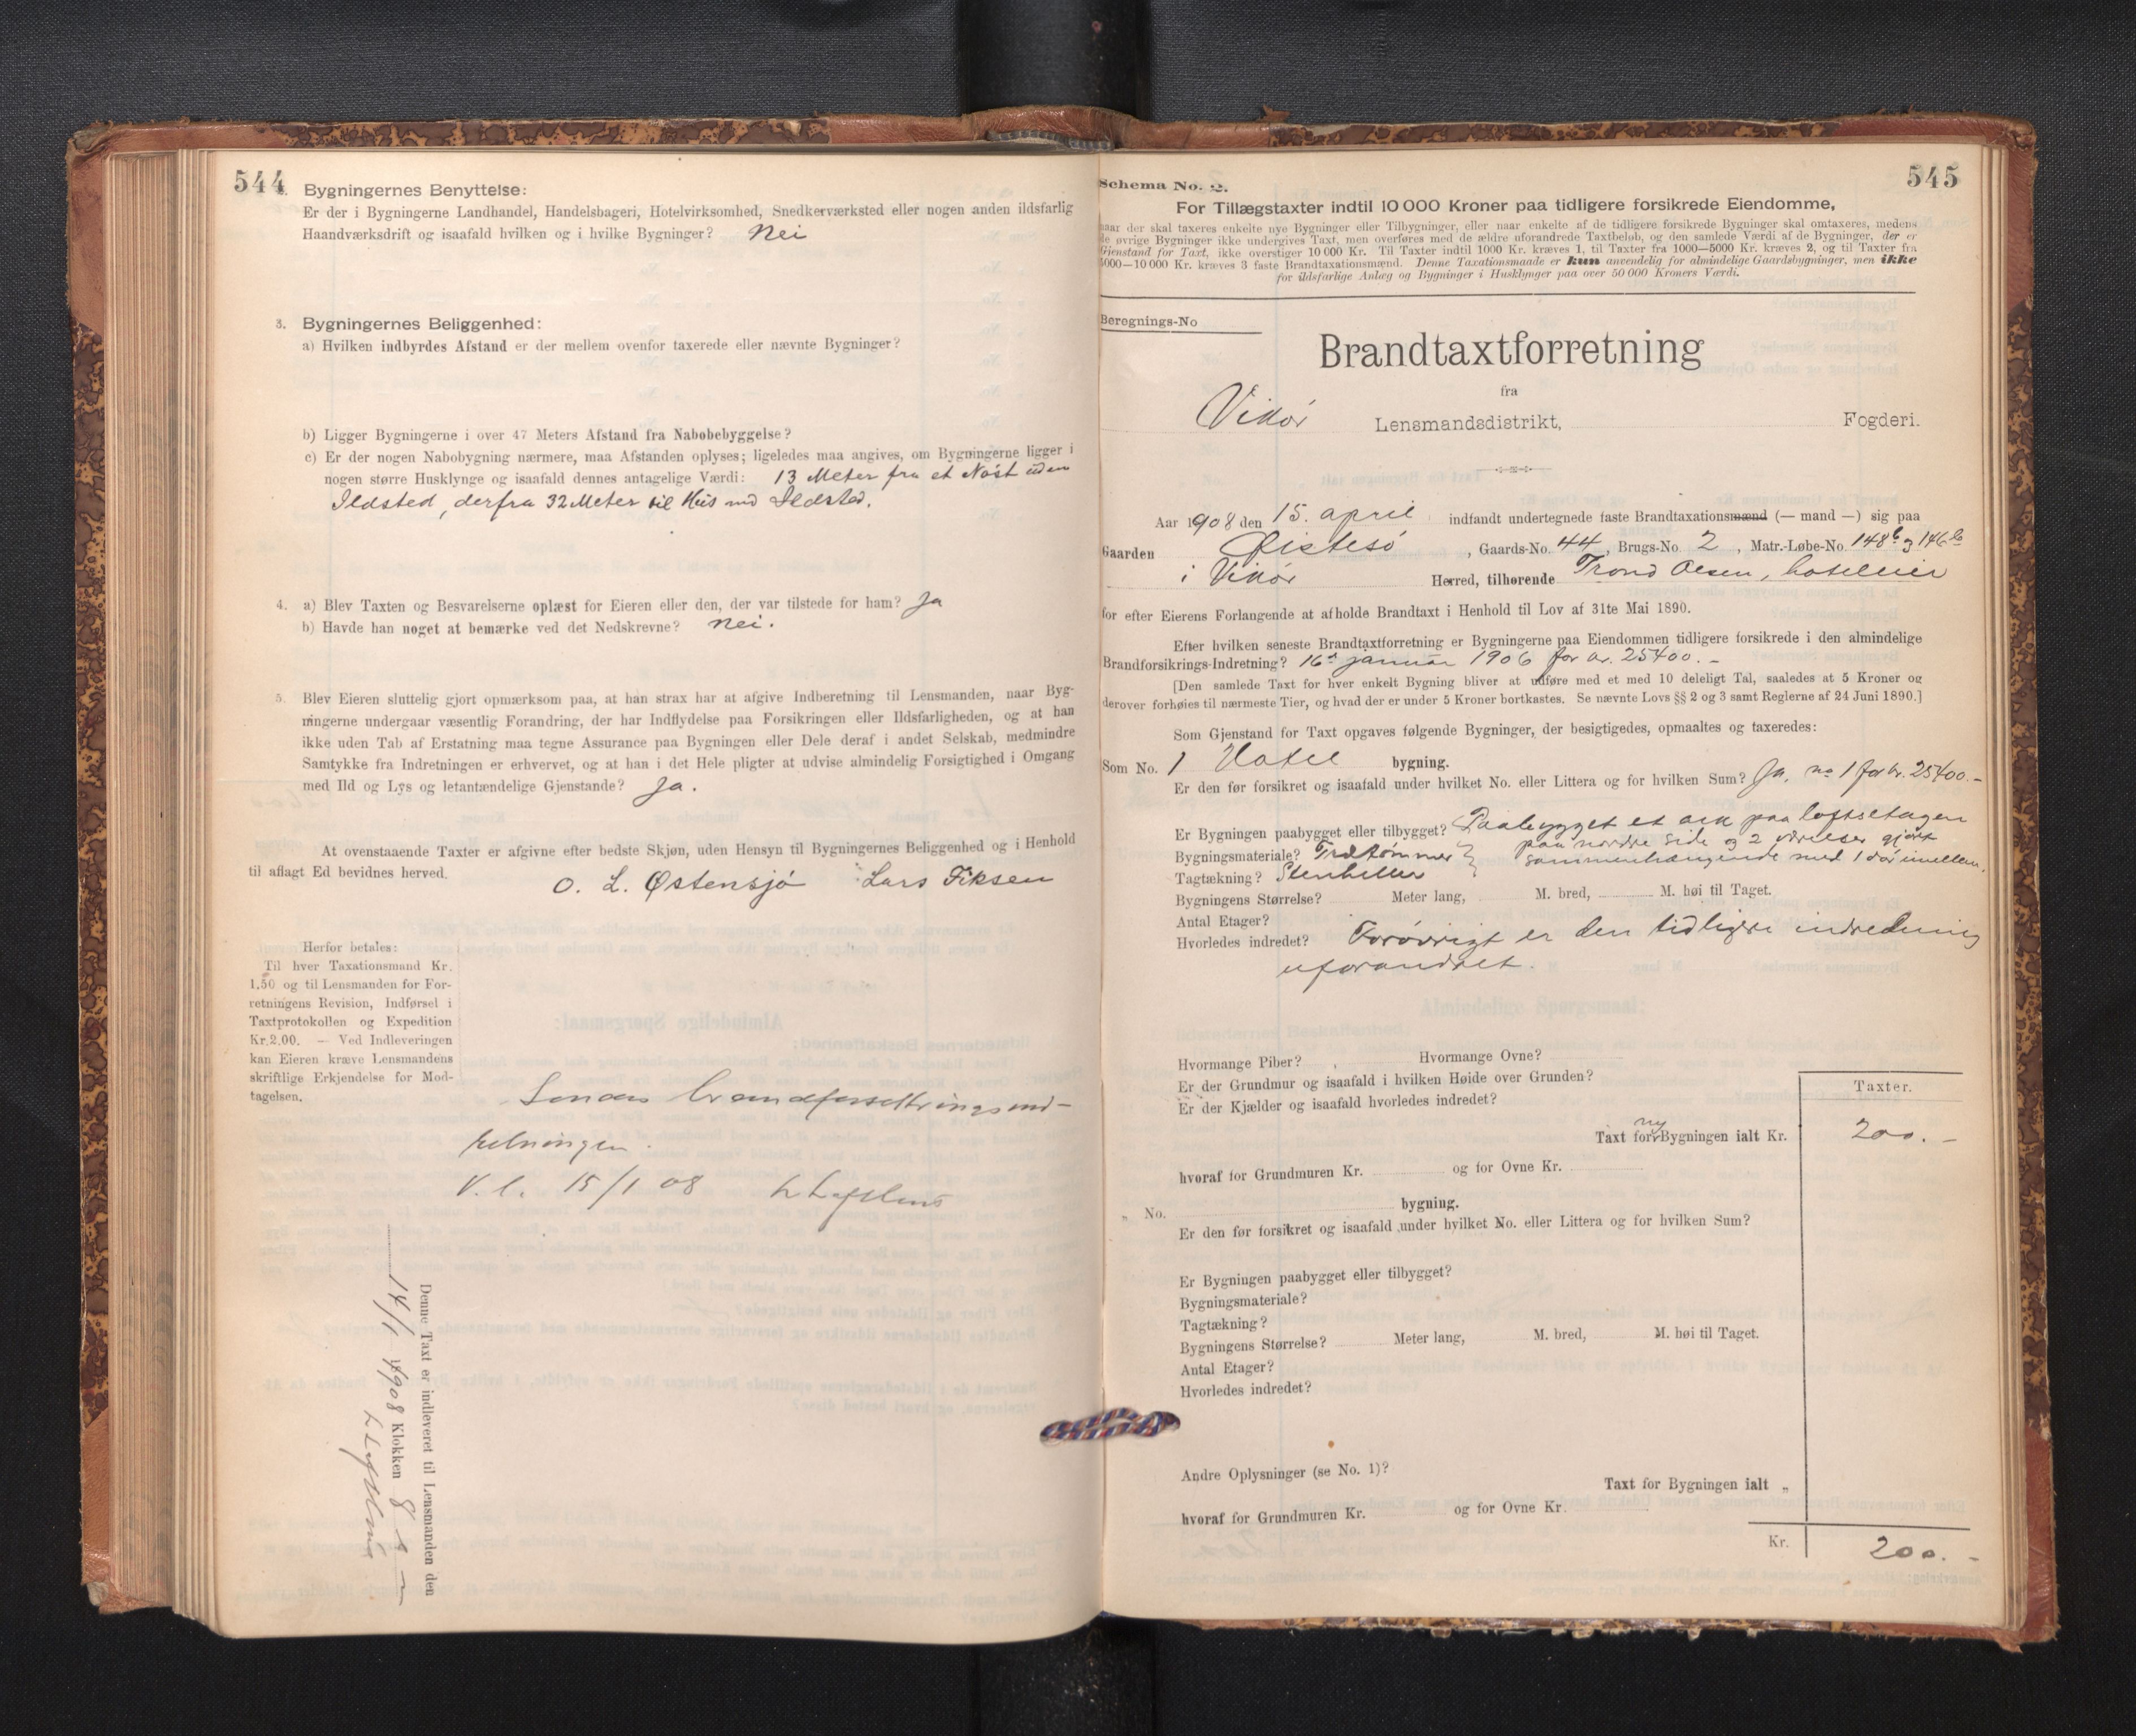 544
Bygningernes Benyttelse:
Er der i Bygningerne Landhandel, Handelsbageri, Hotelvirksomhed, Snedkerværksted eller nogen anden ildsfarlig
Haandværksdrift og isaafald hvilken og i hvilke Bygninger? Nei
3. Bygningernes Beliggenhed:
a) Hvilken indbyrdes Afstand er der mellem ovenfor taxerede eller nævnte Bygninger?
b) Ligger Bygningerne i over 47 Meters Afstand fra Nabobebyggelse?
c) Er der nogen Nabobygning nærmere, maa Afstanden oplyses; ligeledes maa angives, om Bygningerne ligger i
nogen større Husklynge og isaafald dennes antagelige Værdi: 13 Meter fra et Nøst uden
Ildsted, derfra 32 Meter til Hus med Ildsted.
4. a) Blev Taxten og Besvarelserne oplæst for Eieren eller den, der var tilstede for ham? Ja
b) Havde han noget at bemærke ved det Nedskrevne? Nei.
5. Blev Eieren sluttelig gjort opmærksom paa, at han strax har at afgive Indberetning til Lensmanden, naar Byg-
ningerne undergaar væsentlig Forandring, der har Indflydelse paa Forsikringen eller Ildsfarligheden, og at han
ikke uden Tab af Erstatning maa tegne Assurance paa Bygningen eller Dele deraf i andet Selskab, medmindre
Samtykke fra Indretningen er erhvervet, og at han i det Hele pligter at udvise almindelig Forsigtighed i Omgang
med Ild og Lys og letantændelige Gjenstande? Ja.
At ovenstaaende Taxter er afgivne efter bedste Skjøn, uden Hensyn til Bygningernes Beliggenhed og i Henhold
til aflagt Ed bevidnes herved.
O. L. Østensjø Lars Fiksen
Herfor betales:
Til hver Taxationsmand Kr.
1.50 og til Lensmanden for For-
retningens Revision, Indførsel i
Taxtprotokollen og Expedition
Kr. 2.00. — Ved Indleveringen
kan Eieren kræve Lensmandens
skriftlige Erkjendelse for Mod-
tagelsen.
Sendes brandforsikringsind-
retningen.
V. l. 15/1 08
Denne Taxt er indleveret til Lensmanden den
14/1 1908 Klokken 8
545
Schema No. 2.
For Tillægstaxter indtil 10 000 Kroner paa tidligere forsikrede Eiendomme,
naar der skal taxeres enkelte nye Bygninger eller Tilbygninger, eller naar enkelte af de tidligere forsikrede Bygninger skal omtaxeres, medens
de øvrige Bygninger ikke undergives Taxt, men overføres med de ældre uforandrede Taxtbeløb, og den samlede Værdi af de Bygninger, der er
Gjenstand for Taxt, ikke overstiger 10 000 Kr. Til Taxter indtil 1000 Kr. kræves 1, til Taxter fra 1000—5000 Kr. kræves 2, og til Taxter fra
5000—10 000 Kr. kræves 3 faste Brandtaxationsmænd. Denne Taxationsmaade er kun anvendelig for almindelige Gaardsbygninger, men ikke
for ildsfarlige Anlæg og Bygninger i Husklynger paa over 50 000 Kroners Værdi.
Beregnings-No
Brandtaxtforretning
fra
Vikør Lensmandsdistrikt, Fogderi.
Aar 1908 den 15. april indfandt undertegnede faste Brandtaxationsmænd (— mand —) sig paa
Gaarden Østesø, Gaards-No. 44, Brugs-No. 2, Matr.-Løbe-No. 148b og 146b
i Vikør Herred, tilhørende Trond Olsen, hoteleier
for efter Eierens Forlangende at afholde Brandtaxt i Henhold til Lov af 31te Mai 1890.
Efter hvilken seneste Brandtaxtforretning er Bygningerne paa Eiendommen tidligere forsikrede i den almindelige
Brandforsikrings-Indretning? 16de januar 1906 for kr. 25400.-
[Den samlede Taxt for hver enkelt Bygning bliver at udføre med et med 10 deleligt Tal, saaledes at 5 Kroner og
derover forhøies til nærmeste Tier, og hvad der er under 5 Kroner bortkastes. Se nævnte Lovs §§ 2 og 3 samt Reglerne af 24 Juni 1890.]
Som Gjenstand for Taxt opgaves følgende Bygninger, der besigtigedes, opmaaltes og taxeredes:
Som No. 1 Hotel bygning.
Er den før forsikret og isaafald under hvilket No. eller Littera og for hvilken Sum? Ja, no 1 for kr. 25400.-
Er Bygningen paabygget eller tilbygget? Paabygget et ark paa loftsetagen
paa nordre side og 2 værelser gjort
Bygningsmateriale? Trætømmer sammenhængende med 1 dør imellem.
Tagtækning? Stenheller
Bygningens Størrelse? Meter lang, M. bred, M. høi til Taget.
Antal Etager?
Hvorledes indredet? Forøvrigt er den tidligere indredning
uforandret.
Hvormange Piber? Hvormange Ovne?
Er der Grundmur og isaafald i hvilken Høide over Grunden?
Er der Kjælder og isaafald hvorledes indredet?
Taxter.
Taxt for ny Bygningen ialt Kr. 200.-
hvoraf for Grundmuren Kr. og for Ovne Kr.
„ No. bygning.
Er den før forsikret og isaafald under hvilket No. eller Littera og for hvilken Sum?
Er Bygningen paabygget eller tilbygget?
Bygningsmateriale?
Tagtækning?
Bygningens Størrelse? Meter lang, M. bred, M. høi til Taget.
Antal Etager?
Hvorledes indredet?
Andre Oplysninger (se No. 1)?
Taxt for Bygningen ialt „
hvoraf for Grundmuren Kr. og for Ovne Kr.
Kr. 200.-